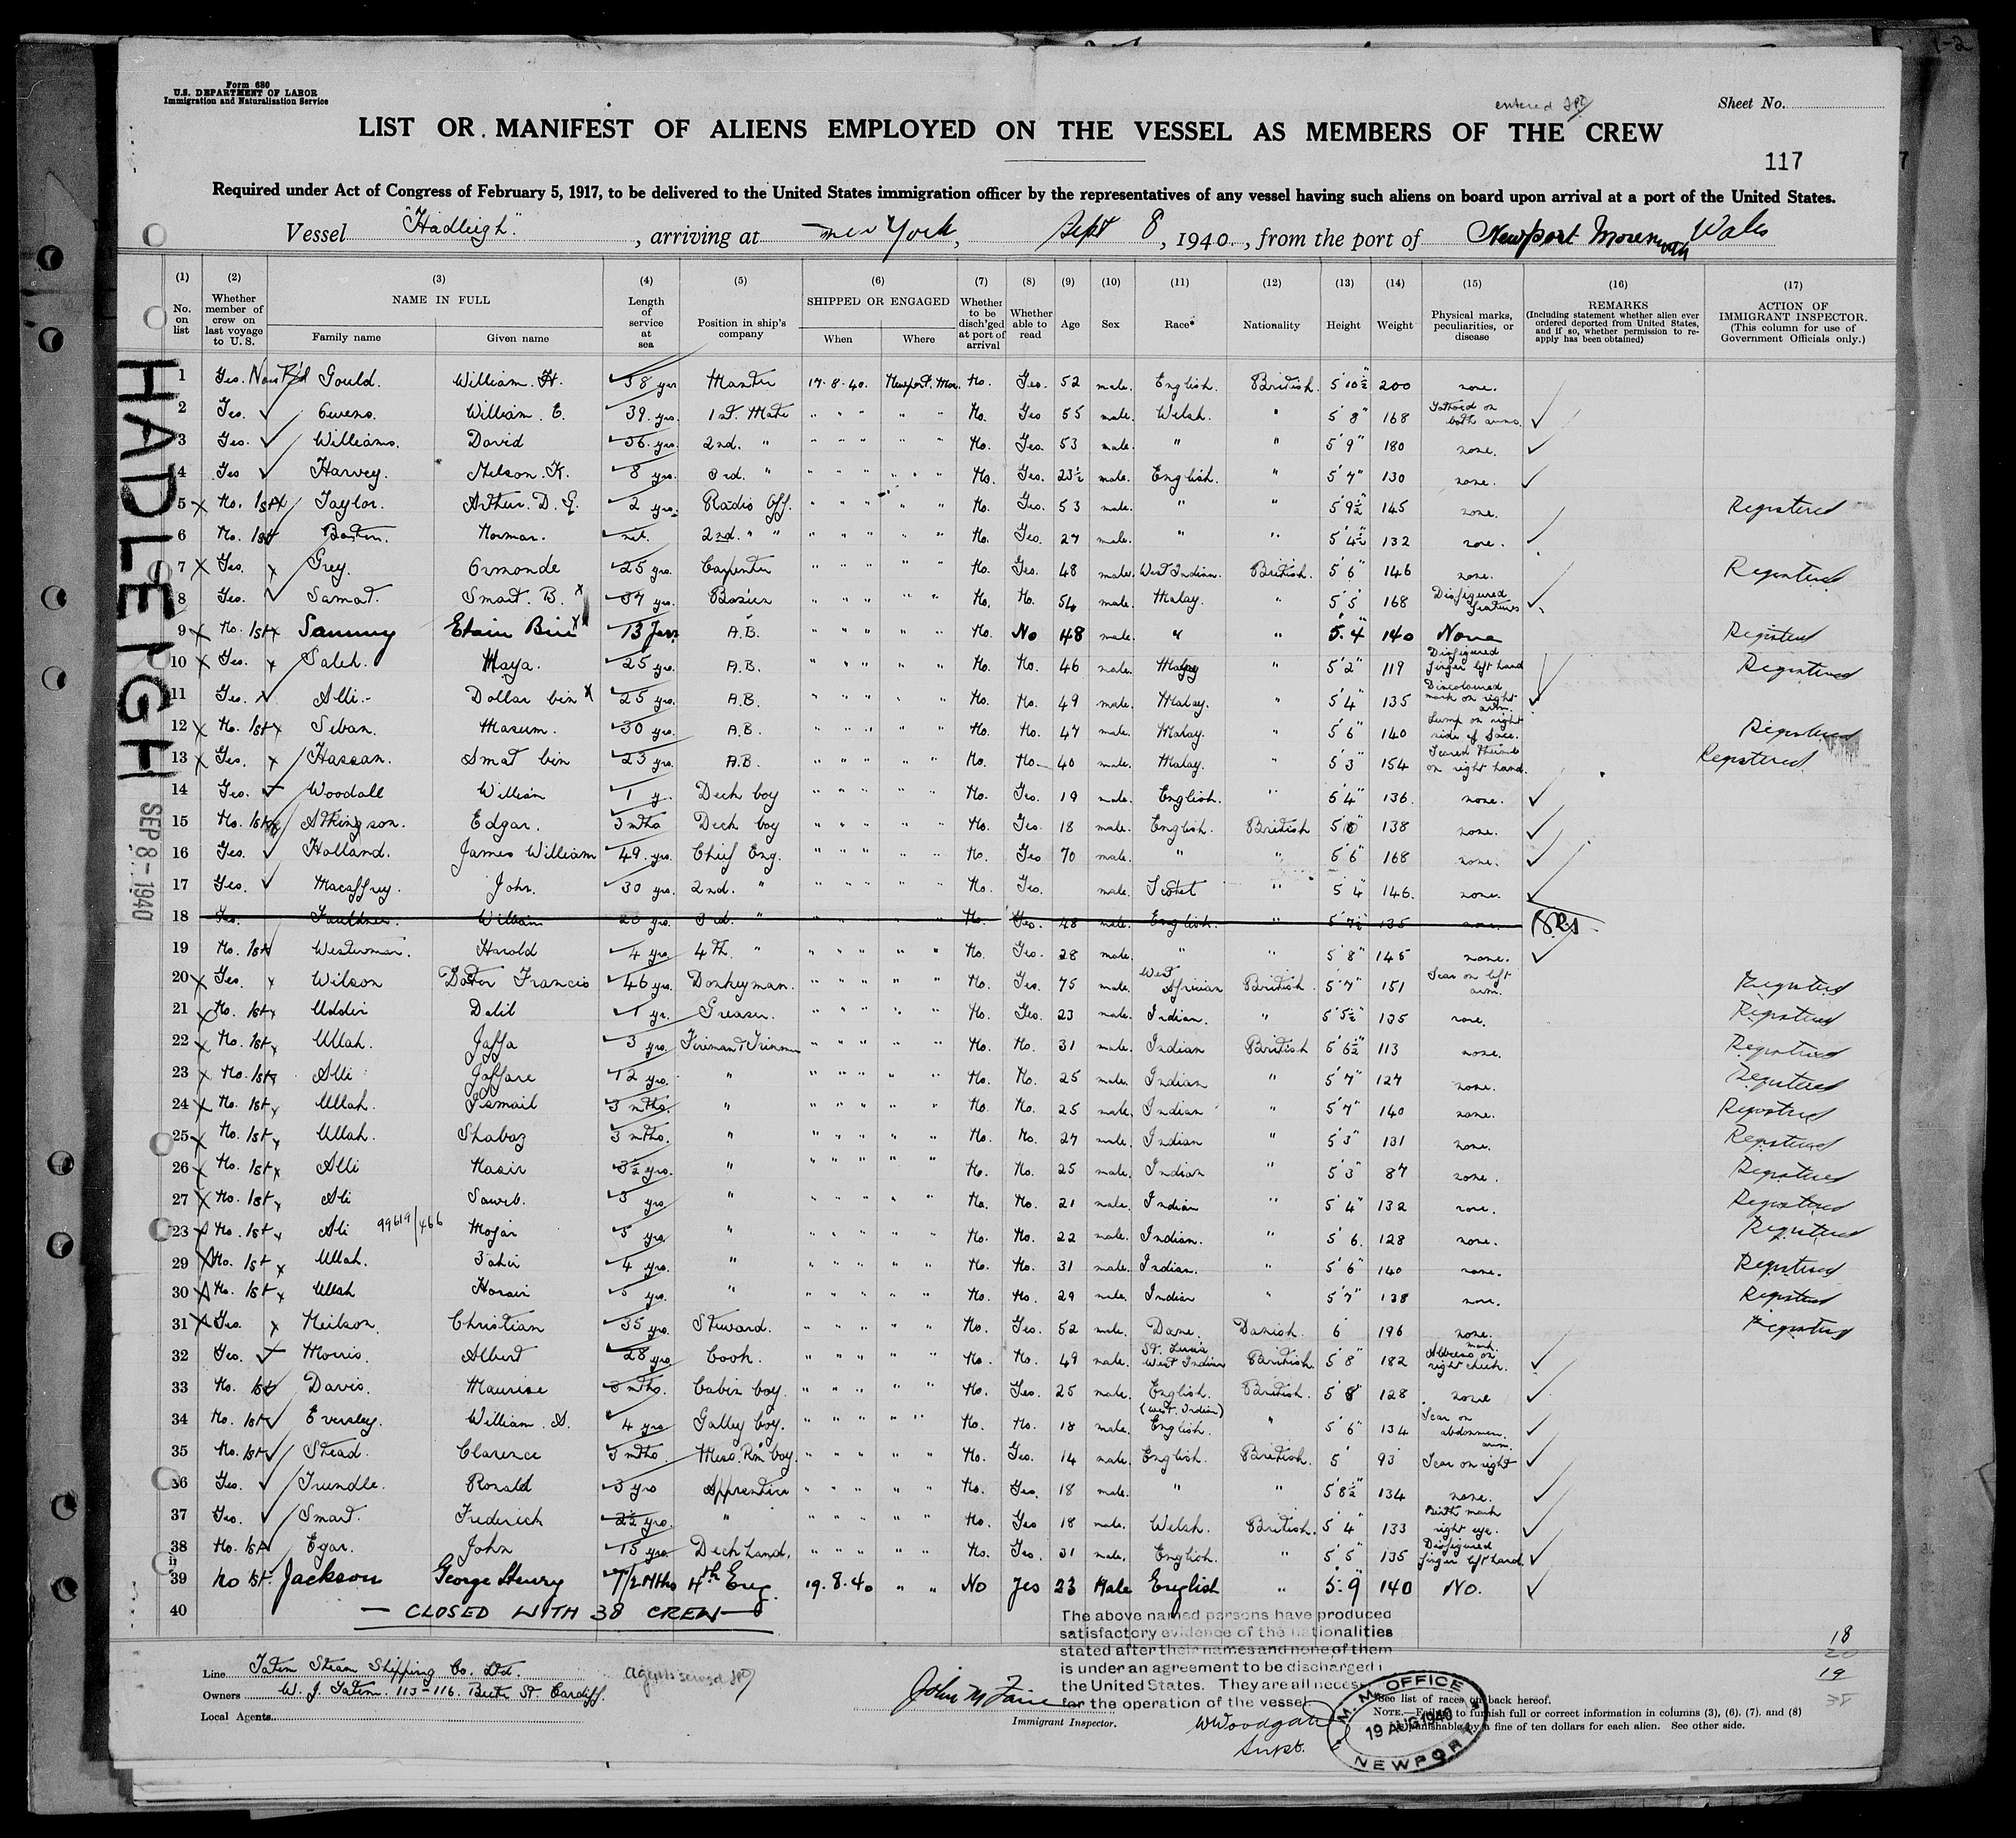 1-2
Form 680
U.S. DEPARTMENT OF LABOR
Immigration and Naturalisation Service
entered
Sheet No.
LIST OR MANIFEST OF ALIENS EMPLOYED ON THE VESSEL AS MEMBERS OF THE CREW
117
Required under Act of Congress of February 5, 1917, to be delivered to the United States immigration officer by the representatives of any vessel having such aliens on board upon arrival at a port of the United States.
Vessel "Hadleigh", arriving at New York, Sept 8, 1940, from the port of Newport Monmouth Wales
(1) (2) (3) (4) (5) (6) (7) (8) (9) (10) (11) (12) (13) (14) (15) (16) (17)
No. on list
Whether member of crew on last voyage to U. S.
NAME IN FULL
Family name Given name
Length of service at sea
Position in ship's company
SHIPPED OR ENGAGED
When Where
Whether to be disch'ged at port of arrival
Whether able to read
Age
Sex
Race*
Nationality
Height
Weight
Physical marks, peculiarities, or disease
REMARKS
(Including statement whether alien ever ordered deported from United States, and if so, whether permission to re-apply has been obtained)
ACTION OF IMMIGRANT INSPECTOR.
(This column for use of Government Officials only.)
HADLEIGH
SEP 8-1940
1 Yes. Gould. William. H. 38 yrs Master 17.8.40. Newport. Mon. No. Yes. 52 male. English. British. 5'10½" 200 none.
2 Yes. Owens. William. E. 39. yrs. 1st. Mate " " " " " No. Yes 55 male. Welsh. " 5'8" 168 Tattooed on both arms.
3 Yes. Williams. David 36. yrs. 2nd. " " " " " " No. Yes. 53 male. " " 5'9" 180 none.
4 Yes Harvey. Nelson. K. 8 yrs. 3rd. " " " " " " No. Yes. 23½ male. English. " 5'7" 130 none.
5 No. 1st Taylor. Arthur. D. G. 2 yrs. Radio Off. " " " " " No. Yes. 53 male. " " 5'9½" 145 none. Registered
6 No. 1st Norman. nil. 2nd. " " " " " " " No. Yes. 27 male. " " 5'4½" 132 none.
7 Yes. Grey. Ormonde 25 yrs. Carpenter " " " " " No. Yes. 48 male. West Indian. British. 5'6" 146 none. Registered
8 Yes. Samat. Smart. B. 37 yrs. Bos'un " " " " " No. No. 54 male. Malay. " 5'5" 168 Disfigured features
9 No. 1st Sammy Etain Bin 13 Years A.B. " " " " " No. No 48 male " " 5'.4" 140 None Registered
10 Yes. Saleh. Maya. 25 yrs. A.B. " " " " " No. No. 46 male. Malay " 5'2" 119 Disfigured finger left hand Registered
11 Yes. Alli. Dollar bin 25 yrs. A.B. " " " " " No. No. 49 male. Malay. " 5'4" 135 Discoloured mark on right arm.
12 No. 1st Seban. Masum. 30 yrs. A.B. " " " " " No. No. 47 male. Malay. " 5'6" 140 Lump on right side of face. Registered
13 Yes. Hassan. Smat bin 23 yrs. A.B. " " " " " No. No. 40 male. Malay. " 5'3" 154 Scared thumb on right hand. Registered.
14 Yes. Woodall William 1 y. Deck boy " " " " " No. Yes. 19 male. English. " 5'4" 136. none.
15 No. 1st Atkingson. Edgar. 3 mths Deck boy " " " " " No. Yes. 18 male. English. British 5'10" 138 none.
16 Yes. Holland. James William 49. yrs. Chief Eng. " " " " " No. Yes 70 male. " " 5'6" 168 none.
17 Yes. Macaffrey. John. 30 yrs. 2nd. " " " " " " No. Yes. male. Scotch " 5'4" 146. none.
18 Yes. Faulkner. William 20 yrs. 3rd. " " " " " " No. Yes. 48 male. English. " 5'7½" 135 none.
19 No. 1st Westerman. Harold 4 yrs. 4th. " " " " " " No. Yes. 28 male. " " 5'8" 145 none.
20 Yes. Wilson Francis 46 yrs. Donkeyman. " " " " " No. Yes. 75 male. West African British. 5'7" 151 Scar on left arm. Registered
21 No. 1st Uddin Dalil 1 yr. Greaser. " " " " " No. Yes. 23 male. Indian. " 5'5½" 135 none. Registered
22 No. 1st Ullah. Jaffa 3 yrs. Fireman & Trimmer " " " " " No. No. 31 male. Indian British 5'6½" 113 none. Registered
23 No. 1st Alli Jaffare 12 yrs. " " " " " " No. No. 25 male. Indian " 5'7" 127 none. Registered
24 No. 1st Ullah. Ismail 3 mths. " " " " " " No. No. 25 male. Indian " 5'7" 140 none. Registered
25 No. 1st Ullah. Shabaz 3 mths. " " " " " " No. No. 27 male. Indian " 5'3" 131 none. Registered
26 No. 1st Alli Nasir 3½ yrs. " " " " " " No. No. 25 male. Indian " 5'3" 87 none. Registered
27 No. 1st Ali 3 yrs " " " " " " No. No. 21 male. Indian " 5'4" 132 none. Registered
28 No. 1st Ali 99619/466 5 yrs " " " " " " No. No. 22 male. Indian. " 5'6. 128 none. Registered
29 No. 1st Ullah. 4 yrs. " " " " " " No. No. 31 male. Indian. " 5'6" 140 none. Registered
30 No. 1st Ullah 5 yrs. " " " " " " No. No. 29 male. Indian " 5'7" 138 none. Registered
31 Yes. Neilson. Christian 35 yrs. Steward. " " " " " No. Yes. 52 male. Dane. Danish. 6' 196 none. Registered
32 Yes. Morris. Albert 28 yrs Cook. " " " " " No. No. 49 male. St. Lucia West Indian British. 5'8" 182 Abscess mark on right cheek.
33 No. 1st Davis. Maurice 3 mths. Cabin boy. " " " " " No. Yes. 25 male. English. British. 5'8" 128 none
34 No. 1st Eversley. William. A. 4 yrs Galley boy. " " " " " No. No. 18 male. (West. Indian) English. " 5'6" 134 Scar on abdomen.
35 No. 1st Stead. Clarence 3 mths. Mess. Rm boy. " " " " " No. Yes. 14 male. English. British. 5' 93 Scar on right arm.
36 Yes. Trundle. Ronald 3 yrs Apprentice " " " " " No. Yes. 18 male. " " 5'8½" 134 none.
37 Yes. Smart. Frederick 2½ yrs. " " " " " " No. Yes 18 male. Welsh. British. 5'4" 133 Birth mark right eye.
38 No. 1st Egar. John 15 yrs. Deck hand. " " " " " No. Yes. 31 male. English. " 5'5" 135 Disfigured finger left hand.
39 No 1st. Jackson George Henry 7/12 Mths 4th Eng. 19.8.40 " " No Yes 23 Male English " 5'.9" 140 No.
40 — CLOSED WITH 38 CREW —
The above named persons have produced
satisfactory evidence of the nationalities
stated after their names and none of them
is under an agreement to be discharged i
the United States. They are all neces
for the operation of the vessel
18
20
19
Line Tatem Steam Shipping Co. Ltd.
Owners W. J. Tatem. 113-116. Bute St. Cardiff.
Local Agents
Agents served
Immigrant Inspector.
W Woodgate
Supt.
M. M. OFFICE
19 AUG 1940
NEWPORT
*See list of races on back hereof.
NOTE.—Failure to furnish full or correct information in columns (3), (6), (7), and (8)
is punishable by a fine of ten dollars for each alien. See other side.